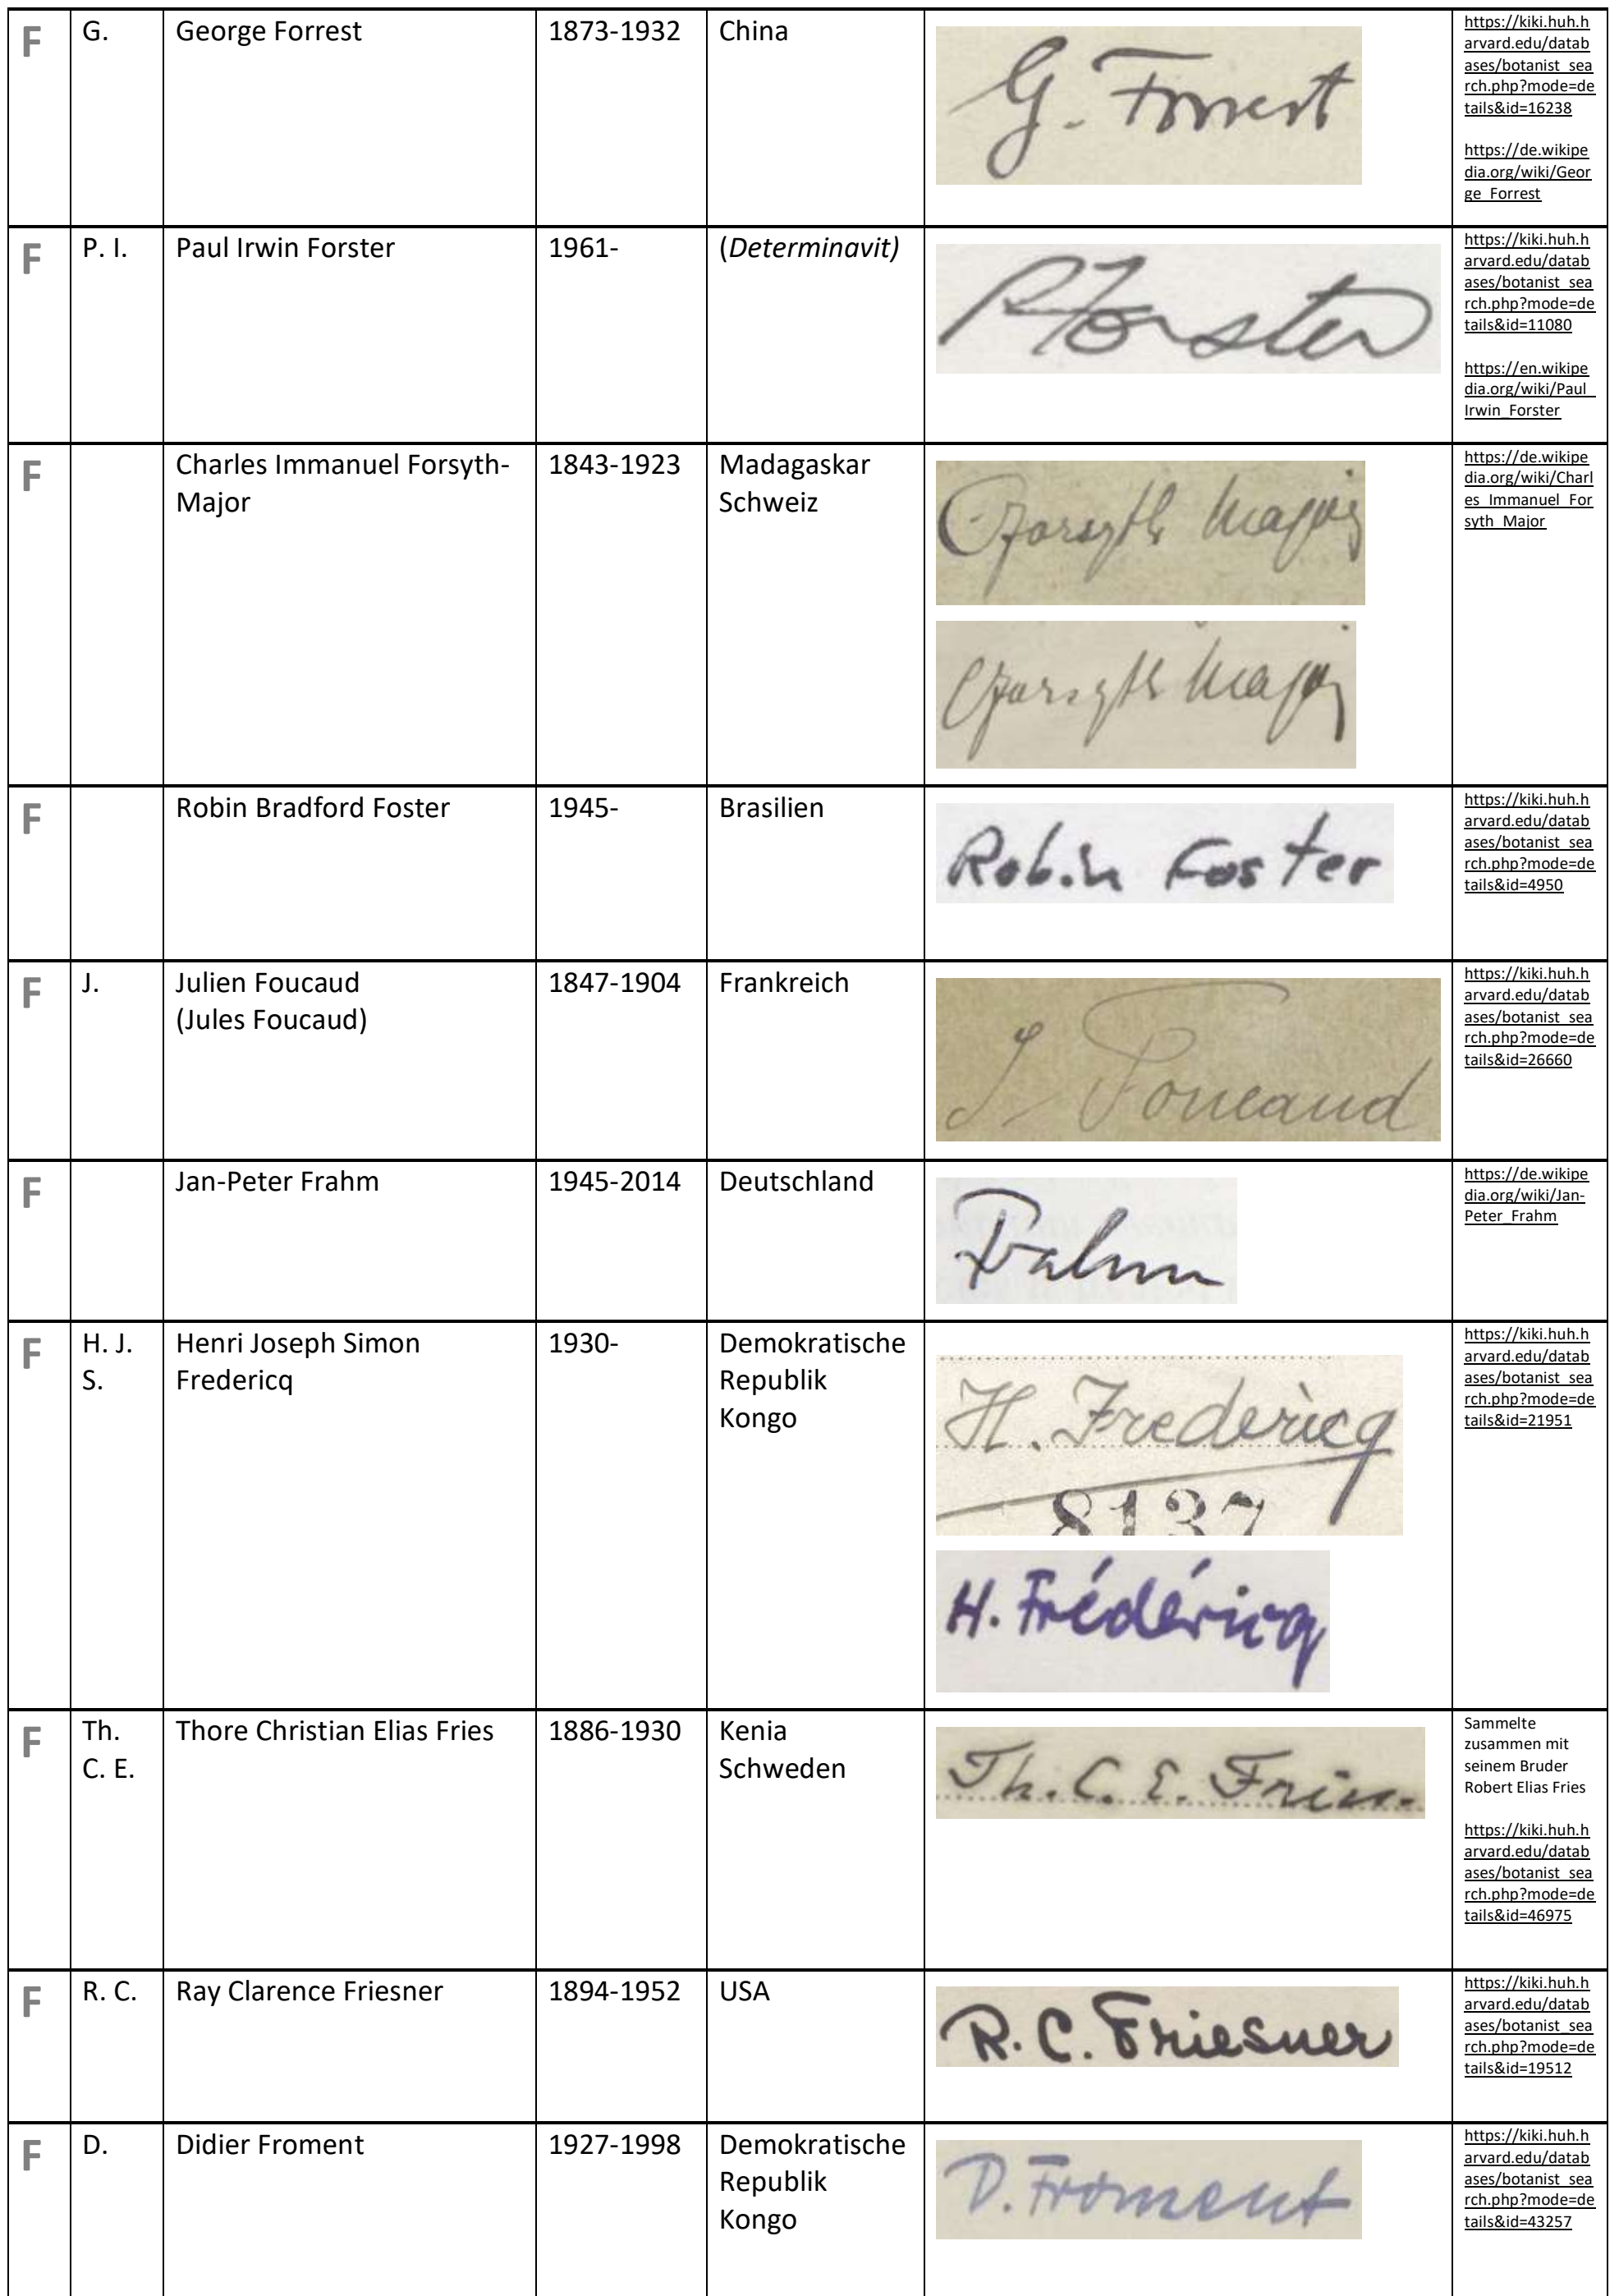 F G. George Forrest 1873-1932 China G. Forrest https://kiki.huh.h
arvard.edu/datab
ases/botanist_sea
rch.php?mode=de
tails&id=16238
https://de.wikipe
dia.org/wiki/Geor
ge_Forrest
F P. I. Paul Irwin Forster 1961- (Determinavit) PForster https://kiki.huh.h
arvard.edu/datab
ases/botanist_sea
rch.php?mode=de
tails&id=11080
https://en.wikipe
dia.org/wiki/Paul_
Irwin_Forster
F Charles Immanuel Forsyth- 1843-1923 Madagaskar https://de.wikipe
Major Schweiz dia.org/wiki/Charl
es_Immanuel_For
syth_Major
C Forsyth Major
C Forsyth Major
F Robin Bradford Foster 1945- Brasilien Robin Foster https://kiki.huh.h
arvard.edu/datab
ases/botanist_sea
rch.php?mode=de
tails&id=4950
F J. Julien Foucaud 1847-1904 Frankreich J. Foucaud https://kiki.huh.h
(Jules Foucaud) arvard.edu/datab
ases/botanist_sea
rch.php?mode=de
tails&id=26660
F Jan-Peter Frahm 1945-2014 Deutschland Frahm https://de.wikipe
dia.org/wiki/Jan-
Peter_Frahm
F H. J. Henri Joseph Simon 1930- Demokratische https://kiki.huh.h
S. Fredericq Republik arvard.edu/datab
Kongo ases/botanist_sea
rch.php?mode=de
tails&id=21951
H. Fredericq
8137
H. Frédéricq
F Th. Thore Christian Elias Fries 1886-1930 Kenia Th. C. E. Fries. Sammelte
C. E. Schweden zusammen mit
seinem Bruder
Robert Elias Fries
https://kiki.huh.h
arvard.edu/datab
ases/botanist_sea
rch.php?mode=de
tails&id=46975
F R. C. Ray Clarence Friesner 1894-1952 USA R. C. Friesner https://kiki.huh.h
arvard.edu/datab
ases/botanist_sea
rch.php?mode=de
tails&id=19512
F D. Didier Froment 1927-1998 Demokratische D. Froment https://kiki.huh.h
Republik arvard.edu/datab
Kongo ases/botanist_sea
rch.php?mode=de
tails&id=43257